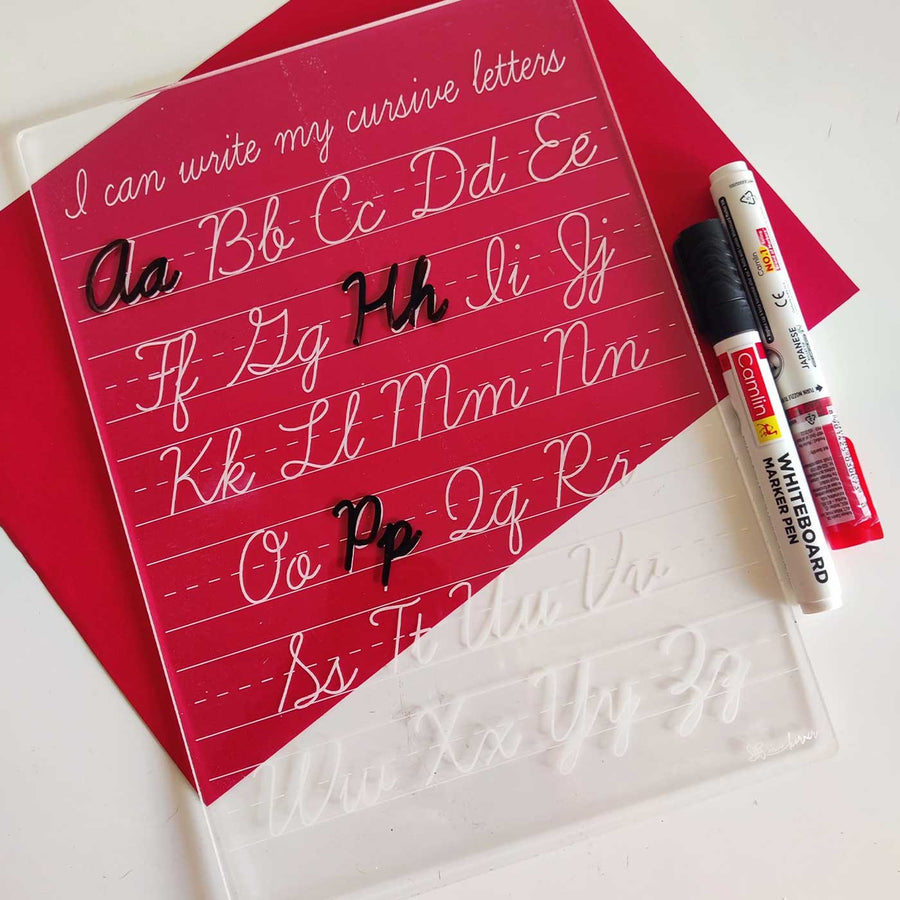 I can write my cursive letters
Aa Bb Cc Dd Ee
Ff Gg Hh Ii Jj
Kk Ll Mm Nn
Oo Pp Qq Rr
Ss Tt Uu Vv
Ww Xx Yy Zz
Camlin
WHITEBOARD
MARKER PEN
Camlin
NO.1
JAPANESE